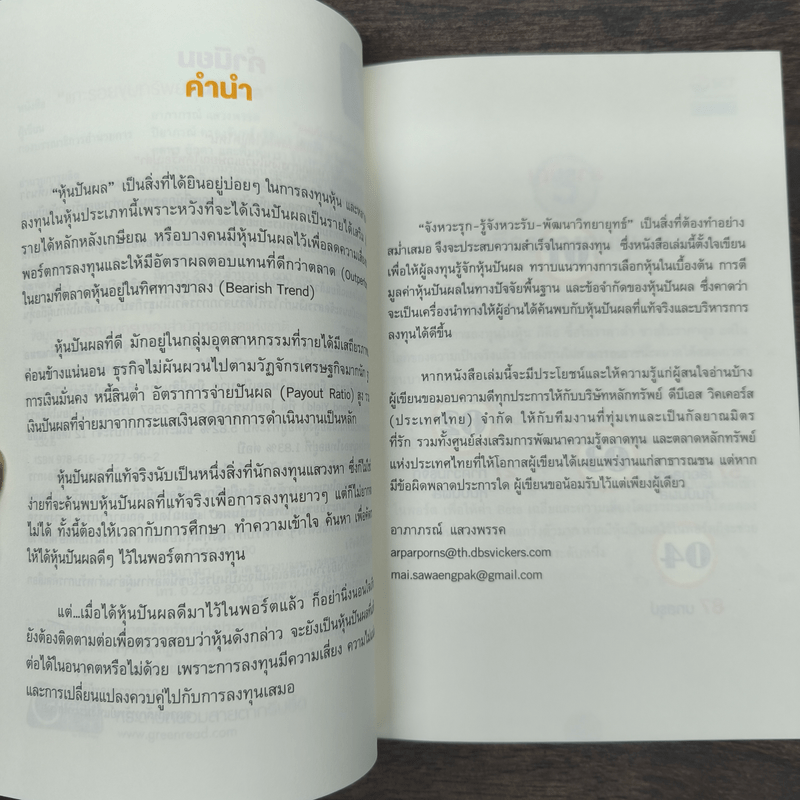 คำนำ
"หุ้นปันผล" เป็นสิ่งที่ได้ยินอยู่บ่อยๆ ในการลงทุนหุ้น
ลงทุนในหุ้นประเภทนี้เพราะหวังที่จะได้เงินปันผลเป็นรายได้เสริม
รายได้หลักหลังเกษียณ หรือบางคนมีหุ้นปันผลไว้เพื่อลดความ
พอร์ตการลงทุนและให้มีอัตราผลตอบแทนที่ดีกว่าตลาด
ในยามที่ตลาดหุ้นอยู่ในทิศทางขาลง (Bearish Trend)
หุ้นปันผลที่ดี มักอยู่ในกลุ่มอุตสาหกรรมที่รายได้มี
ค่อนข้างแน่นอน ธุรกิจไม่ผันผวนไปตามวัฏจักรเศรษฐกิจมากนัก
การเงินมั่นคง หนี้สินต่ำ อัตราการจ่ายปันผล (Payout Ratio) สูง
เงินปันผลที่จ่ายมาจากกระแสเงินสดจากการดำเนินงานเป็นหลัก
หุ้นปันผลที่แท้จริงนับเป็นหนึ่งสิ่งที่นักลงทุนแสวงหา ซึ่งก็ไม่ใช่
ง่ายที่จะค้นพบหุ้นปันผลที่แท้จริงเพื่อการลงทุนยาวๆ แต่ก็ไม่
ไม่ได้ ทั้งนี้ต้องให้เวลากับการศึกษา ทำความเข้าใจ ค้นหา
ให้ได้หุ้นปันผลดีๆ ไว้ในพอร์ตการลงทุน
แต่...เมื่อได้หุ้นปันผลดีมาไว้ในพอร์ตแล้ว ก็อย่านิ่งนอนใจ
ยังต้องติดตามต่อเพื่อตรวจสอบว่าหุ้นดังกล่าว จะยังเป็นหุ้นปันผลที่
ต่อได้ในอนาคตหรือไม่ด้วย เพราะการลงทุนมีความเสี่ยง
และการเปลี่ยนแปลงควบคู่ไปกับการลงทุนเสมอ
"จังหวะรุก-รู้จังหวะรับ-พัฒนาวิทยายุทธ์" เป็นสิ่งที่ต้องทำอย่าง
สม่ำเสมอ จึงจะประสบความสำเร็จในการลงทุน ซึ่งหนังสือเล่มนี้ตั้งใจเขียน
เพื่อให้ผู้ลงทุนรู้จักหุ้นปันผล ทราบแนวทางการเลือกหุ้นในเบื้องต้น การตี
มูลค่าหุ้นปันผลในทางปัจจัยพื้นฐาน และข้อจำกัดของหุ้นปันผล ซึ่งคาดว่า
จะเป็นเครื่องนำทางให้ผู้อ่านได้ค้นพบกับหุ้นปันผลที่แท้จริงและบริหารการ
ลงทุนได้ดีขึ้น
หากหนังสือเล่มนี้จะมีประโยชน์และให้ความรู้แก่ผู้สนใจอ่านบ้าง
ผู้เขียนขอมอบความดีทุกประการให้กับบริษัทหลักทรัพย์ ดีบีเอส วิคเคอร์ส
(ประเทศไทย) จำกัด ให้กับทีมงานที่ทุ่มเทและเป็นกัลยาณมิตร
ที่รัก รวมทั้งศูนย์ส่งเสริมการพัฒนาความรู้ตลาดทุน และตลาดหลักทรัพย์
แห่งประเทศไทยที่ให้โอกาสผู้เขียนได้เผยแพร่งานแก่สาธารณชน แต่หาก
มีข้อผิดพลาดประการใด ผู้เขียนขอน้อมรับไว้แต่เพียงผู้เดียว
อาภาภรณ์ แสวงพรรค
arparporns@th.dbsvickers.com
mai.sawaengpak@gmail.com